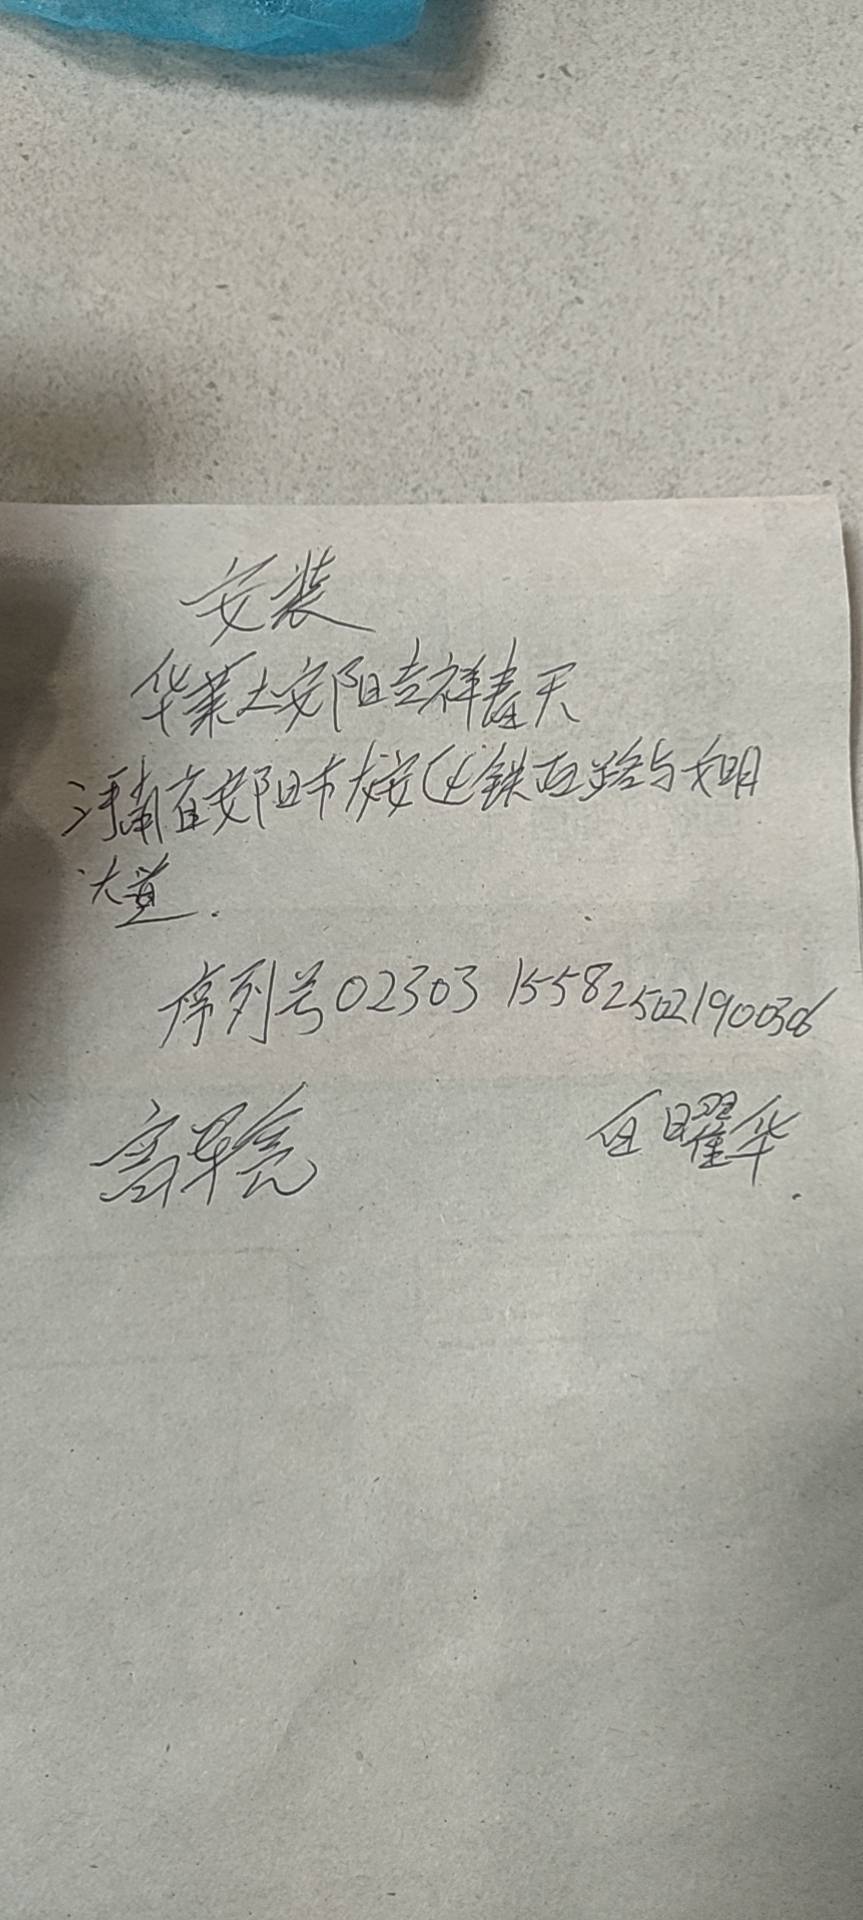 安装
华业上安阳吉祥春天
河南省安阳市文安区铁西路与文明
大道.
序列号02303 155825021900306
高早亮
白曜华.